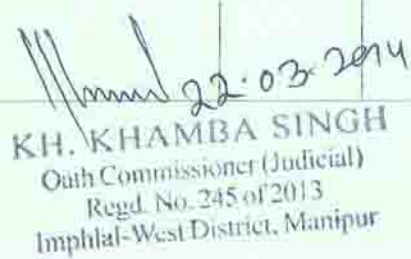 22.03.2014
KH. KHAMBA SINGH
Oath Commissioner (Judicial)
Regd. No. 245 of 2013
Imphlal-West District, Manipur